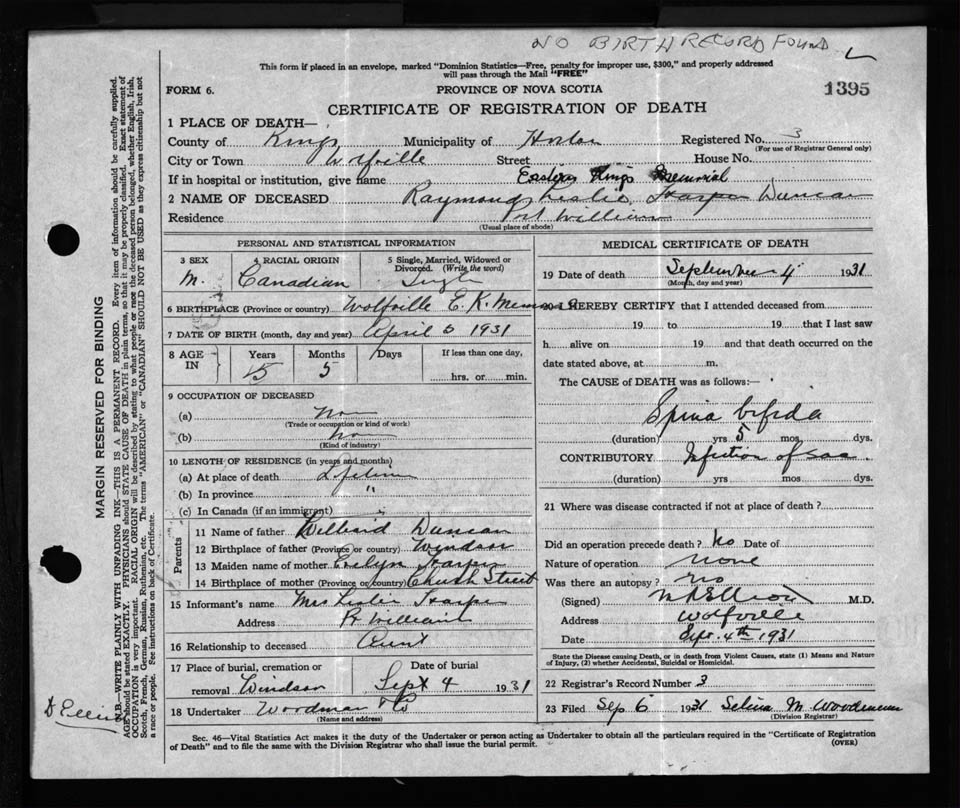 NO BIRTH RECORD FOUND
This form if placed in an envelope, marked "Dominion Statistics—Free, penalty for improper use, $300," and properly addressed
will pass through the Mail "FREE"
FORM 6. PROVINCE OF NOVA SCOTIA 1395
CERTIFICATE OF REGISTRATION OF DEATH
1 PLACE OF DEATH—
County of Kings Municipality of Horton Registered No. 3
(For use of Registrar General only)
City or Town Wolfville Street House No.
If in hospital or institution, give name Eastern Kings Memorial
2 NAME OF DECEASED Raymond Leslie Duncan
Residence Port William
(Usual place of abode)
PERSONAL AND STATISTICAL INFORMATION
3 SEX 4 RACIAL ORIGIN 5 Single, Married, Widowed or
Divorced. (Write the word)
M. Canadian Single
6 BIRTHPLACE (Province or country) Wolfville E. K. Memorial
7 DATE OF BIRTH (month, day and year) April 1931
8 AGE IN Years Months Days If less than one day,
5
hrs. or min.
9 OCCUPATION OF DECEASED
(a)
(Trade or occupation or kind of work)
(b)
(Kind of industry)
10 LENGTH OF RESIDENCE (in years and months)
(a) At place of death Lifetime
(b) In province "
(c) In Canada (if an immigrant)
Parents
11 Name of father Duncan
12 Birthplace of father (Province or country) Windsor
13 Maiden name of mother Evelyn
14 Birthplace of mother (Province or country) Church Street
15 Informant's name Mrs Leslie
Address Pt Williams
16 Relationship to deceased Aunt
17 Place of burial, cremation or Date of burial
removal Windsor Sept 4 1931
18 Undertaker Woodman
(Name and address)
MEDICAL CERTIFICATE OF DEATH
19 Date of death September 4 1931
(Month, day and year)
20 I HEREBY CERTIFY that I attended deceased from
19 to 19 that I last saw
h alive on 19 and that death occurred on the
date stated above, at m.
The CAUSE OF DEATH was as follows:—
Spina bifida
(duration) yrs 5 mos dys.
CONTRIBUTORY Infection of sac
(duration) yrs mos dys.
21 Where was disease contracted if not at place of death?
Did an operation precede death? No Date of
Nature of operation none
Was there an autopsy? no
(Signed) Elliott M.D.
Address Wolfville
Date Sept. 4th 1931
State the Disease causing Death, or in death from Violent Causes, state (1) Means and Nature
of Injury, (2) whether Accidental, Suicidal or Homicidal.
22 Registrar's Record Number 3
23 Filed Sep 6 1931 Selina M Woodman
(Division Registrar)
Sec. 46—Vital Statistics Act makes it the duty of the Undertaker or person acting as Undertaker to obtain all the particulars required in the "Certificate of Registration
of Death" and to file the same with the Division Registrar who shall issue the burial permit. (OVER)
MARGIN RESERVED FOR BINDING
N.B.—WRITE PLAINLY WITH UNFADING INK—THIS IS A PERMANENT RECORD. Every item of information should be carefully supplied.
AGE should be stated EXACTLY. PHYSICIANS should STATE CAUSE OF DEATH in plain terms, so that it may be properly classified. Exact statement of
OCCUPATION is very important. RACIAL ORIGIN will be described by stating to what people or race the deceased person belonged, whether English, Irish,
Scotch, French, German, Russian, Ruthenian, etc. The terms "AMERICAN" or "CANADIAN" SHOULD NOT BE USED as they express citizenship but not
a race or people. See instructions on back of Certificate.